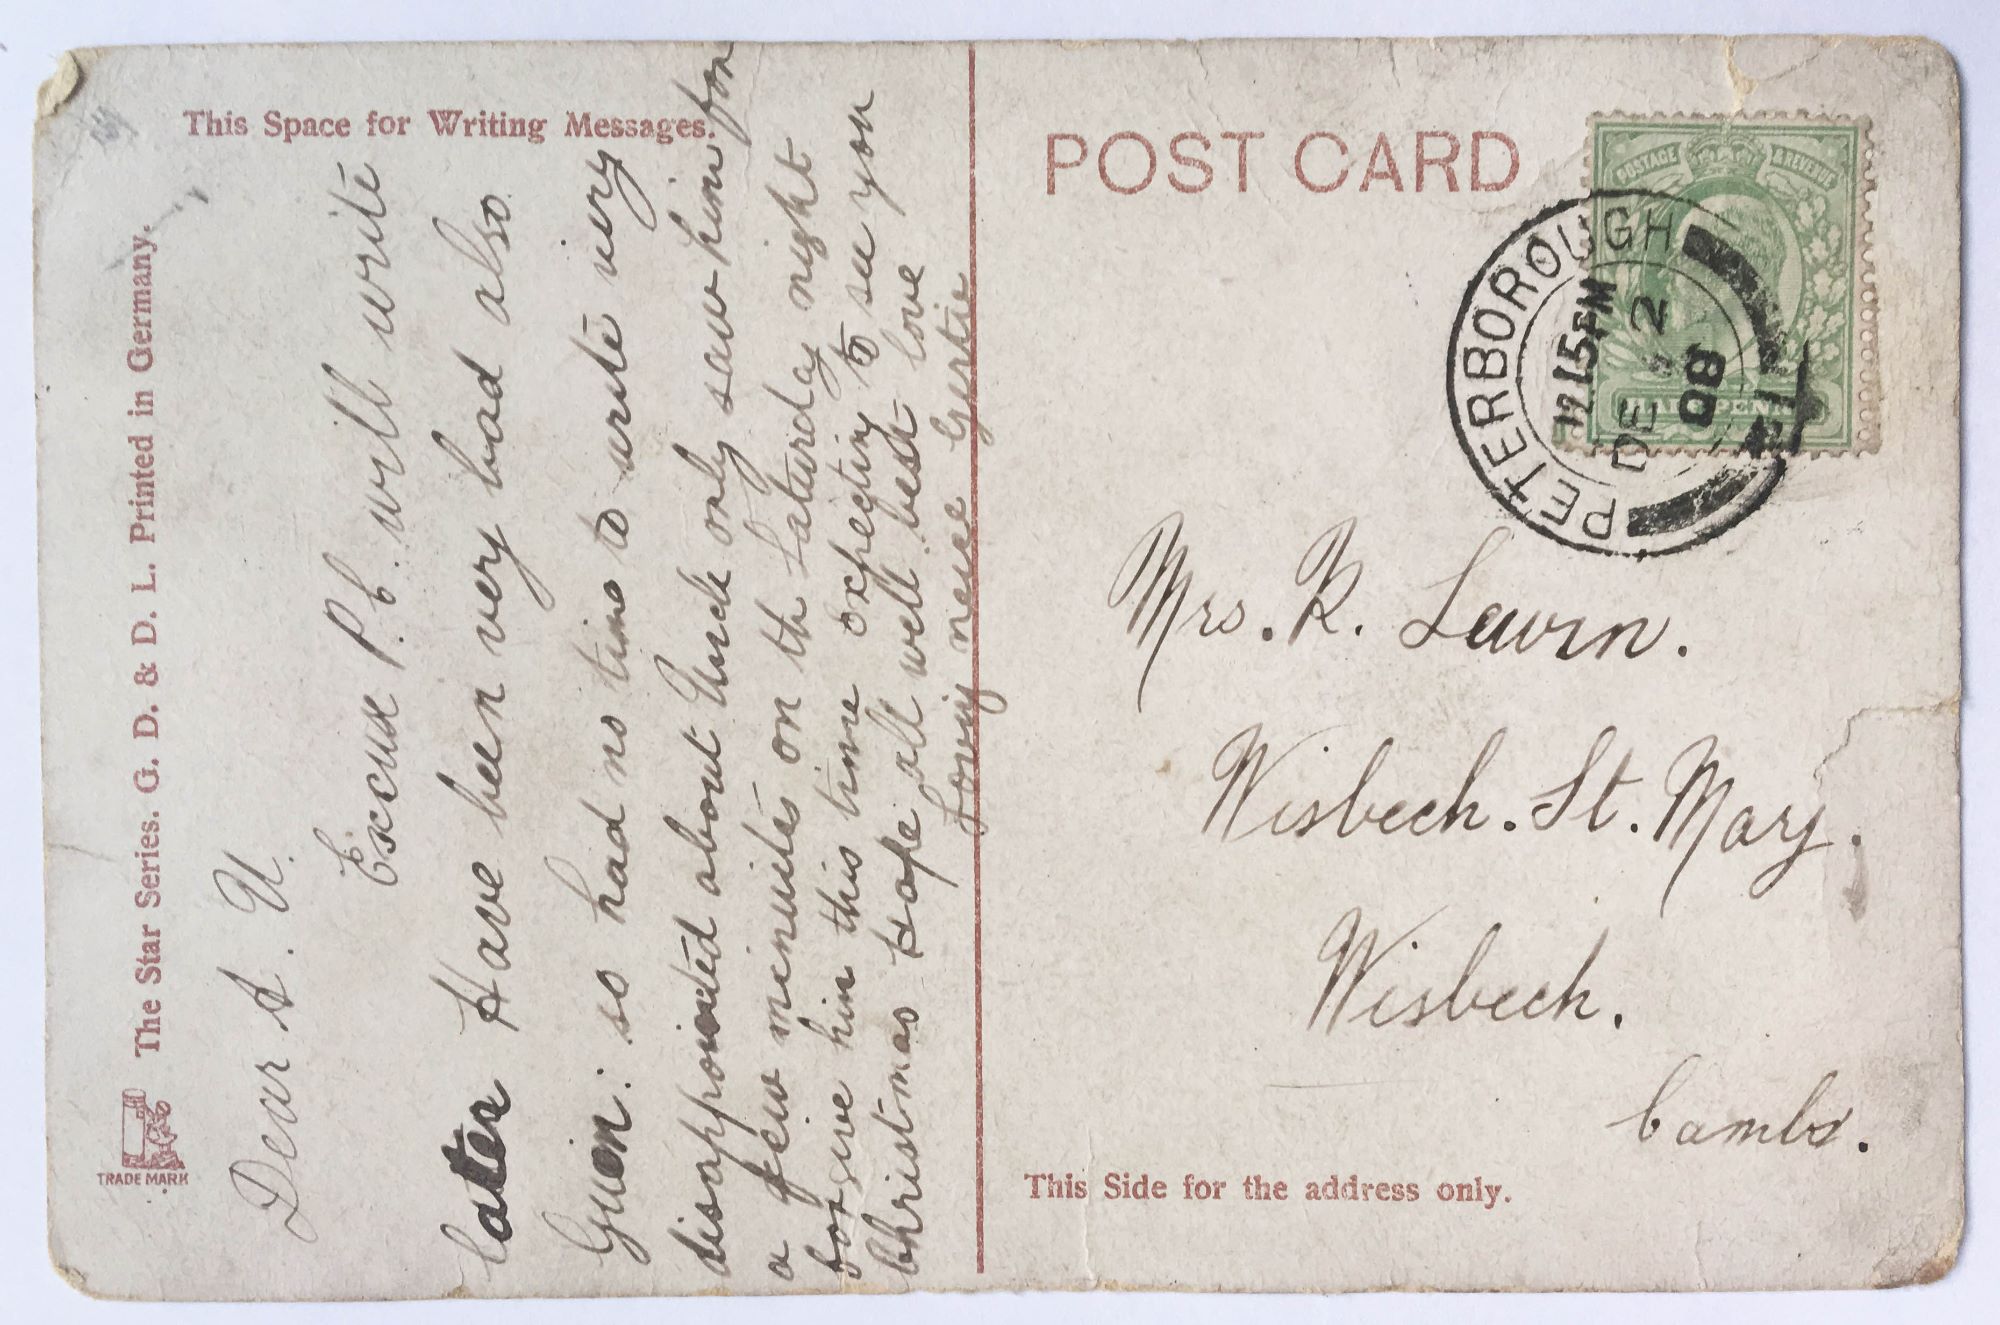 The Star Series. G. D. & D. L. Printed in Germany.
TRADE MARK
This Space for Writing Messages.
Dear A. U.
Excuse P.C. will write
later Have been very bad also
Guen: so had no time to write very
dissappointed about Uncle only saw him for
a few minuites on th Saturday night
forgive him this time expecting to see you
Christmas Hope all well best love
Loving neice Gertie
POST CARD
POSTAGE & REVENUE
HALFPENNY
PETERBOROUGH
12.15PM
DE 2
08
Mrs. R. Lewin.
Wisbech. St. Mary.
Wisbech.
Cambs.
This Side for the address only.